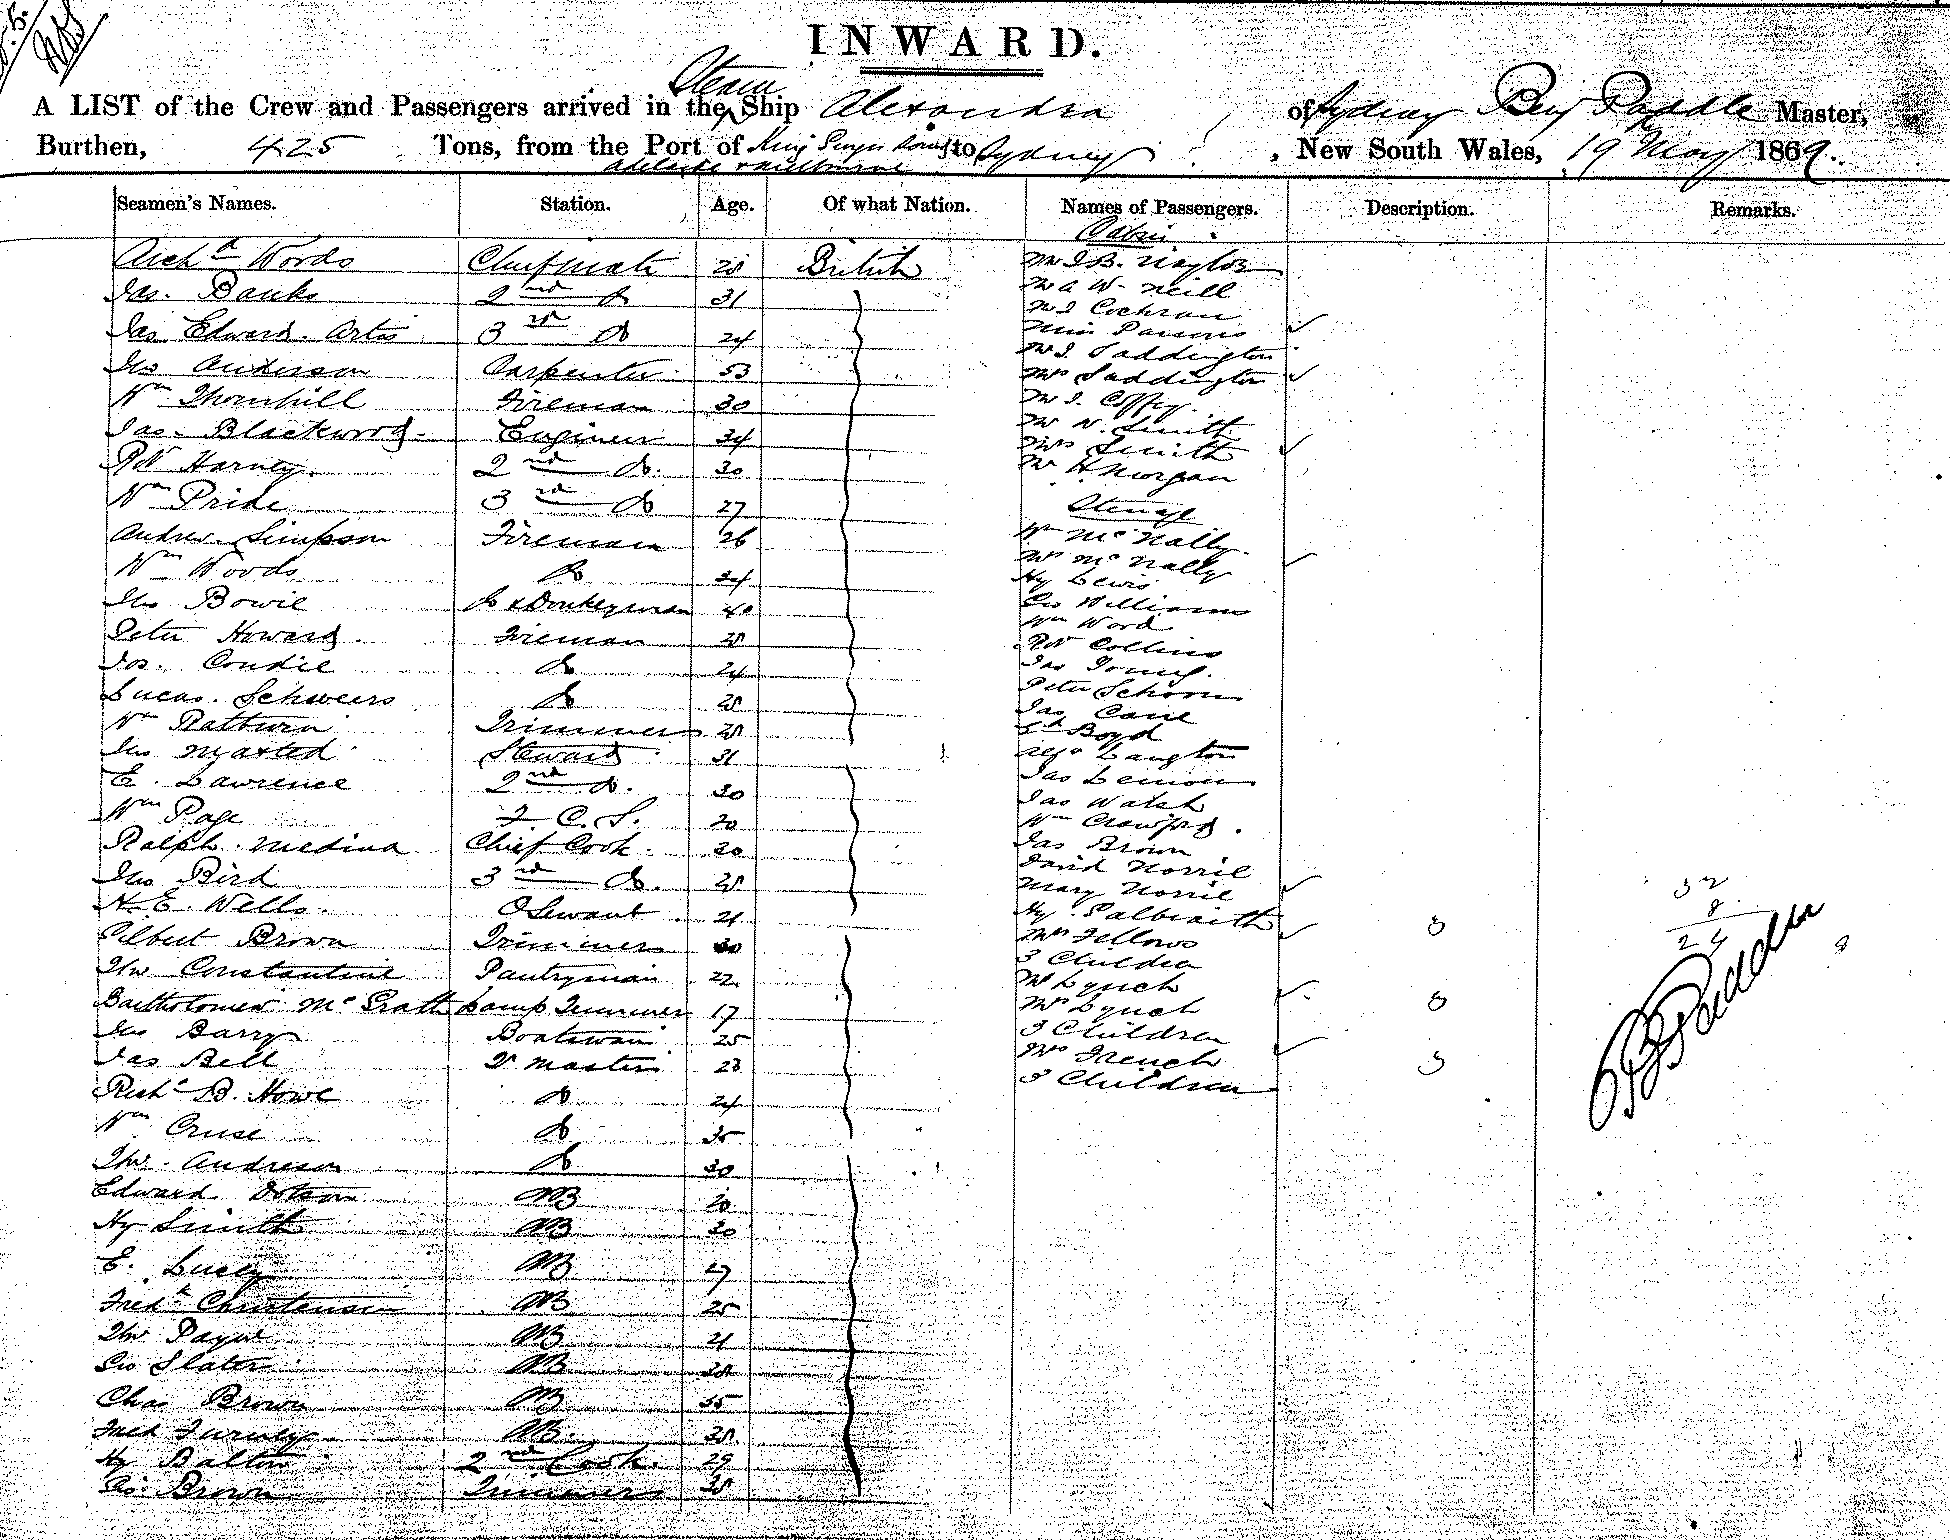 INWARD.
A LIST of the Crew and Passengers arrived in the Steam Ship Alexandra of Sydney Benj Paddle Master,
Burthen, 425 Tons, from the Port of King Georges Sound to Sydney, New South Wales, 19 May 1869.
Adelaide & Melbourne
Seamen's Names. Station. Age. Of what Nation. Names of Passengers. Description. Remarks.
Cabin
Archd Woods Chief mate 28 British Mr J B. Naylor
Jas. Banks 2nd Do 31 Mr A W. Neill
Mr J Cochran
Jas Edward 3rd Do 24 Miss Parsons
Mr J. Saddington
Jno Anderson Carpenter 53 Mrs Saddington
Wm Thornhill Fireman 30 Mr J. Coffey
Mr W. Smith
Jas. Blackwood Engineer 34 Mrs Smith
Rbt Harvey 2nd Do. 30 Mr H Morgan
Wm Pride 3rd Do 27 Steerage
Andrew Simpson Fireman 26 Wm McNally
Wm Woods Do 34 Mrs McNally
Hy Lewis
Jno Bowie Do & Donkeyman 40 Geo Williams
Peter Howard Fireman 28 Wm Word
Rbt Collins
Jos. Condie Do 24 Jas Young
Lucas Schweers Do 28 Peter Schoorn
Jas Cane
Wm Rathurn Trimmer 28 Boyd
Jno Maxted Steward 31 Langton
E. Lawrence 2nd Do. 30 Jas Lemon
Jas Walsh
Wm Page F. C. S. 20 Wm Crawford
Ralph Medina Chief Cook 30 Jas Brown
David Norrie
Jno Bird 3rd Do. 28 Mary Norrie
H. E. Wells O Servant 21 Hy Galbraith
Gilbert Brown Trimmer 30 Mrs Fellows 3
3 Children
Thos Constantine Pantryman 22 Mr Lynch
Bartholomew McGrath Lamp Trimmer 17 Mrs Lynch 3
Jno Barry Boatswain 25 3 Children
Jas Bell Qr Master 23 Mrs French 3
3 Children
Richd B. Howe Do 24
Wm Cruse Do 35
Thos. Andreson Do 30
Edward Dotson AB 20
Hy Smith AB 30
E. Lucey AB 27
Fredk Christensen AB 25
Thos Payne AB 21
Geo Slater AB 38
Chas Brown AB 35
Fred AB. 28
Hy Balton 2nd Cook. 29
Brown Trimmer 38
32
8
24
8